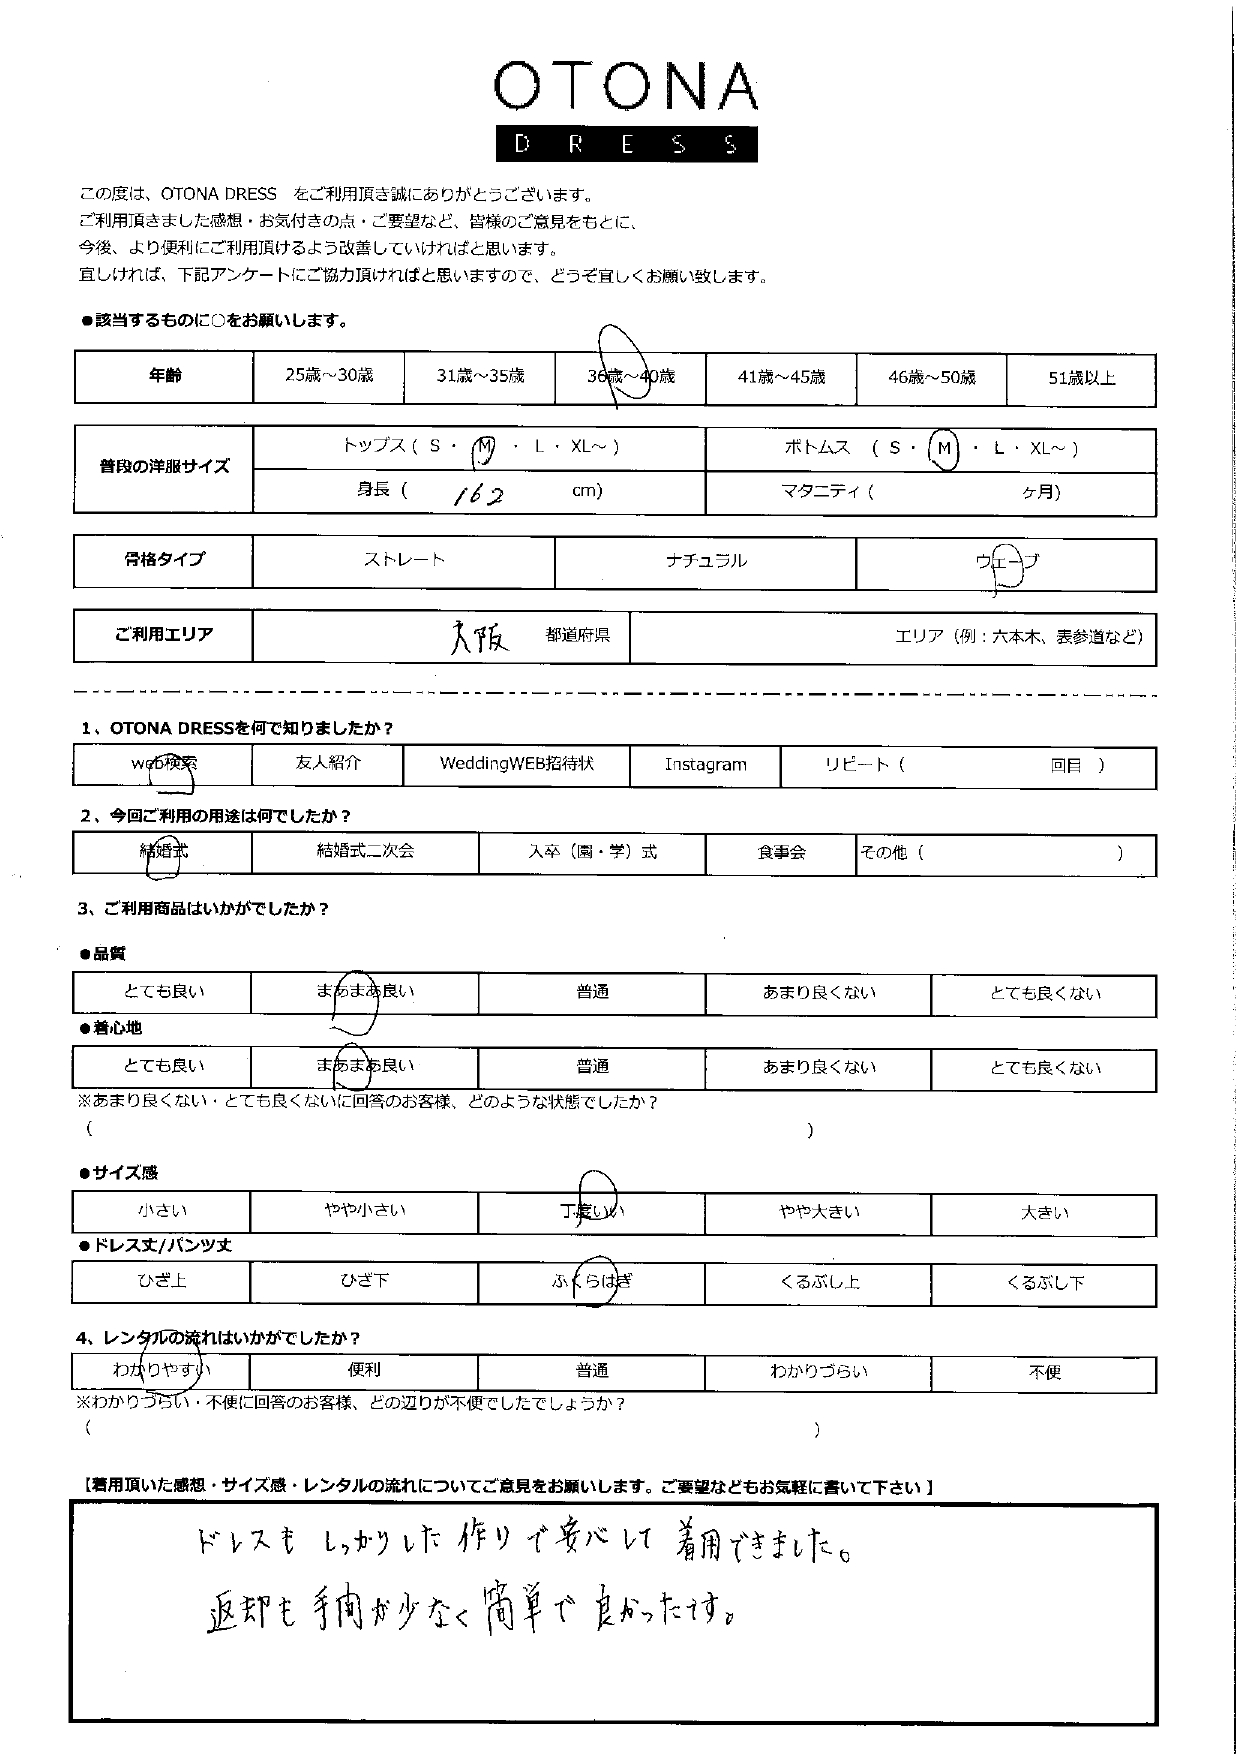 OTONA
DRESS
この度は、OTONA DRESS をご利用頂き誠にありがとうございます。
ご利用頂きました感想・お気付きの点・ご要望など、皆様のご意見をもとに、
今後、より便利にご利用頂けるよう改善していければと思います。
宜しければ、下記アンケートにご協力頂ければと思いますので、どうぞ宜しくお願い致します。
●該当するものに○をお願いします。
年齢 25歳～30歳 31歳～35歳 36歳～40歳 41歳～45歳 46歳～50歳 51歳以上
普段の洋服サイズ
トップス ( S ・ M ・ L ・ XL～ ) ボトムス ( S ・ M ・ L ・ XL～ )
身長 ( 162 cm) マタニティ ( ヶ月)
骨格タイプ ストレート ナチュラル ウェーブ
ご利用エリア 大阪 都道府県 エリア（例：六本木、表参道など）
1、OTONA DRESSを何で知りましたか？
web検索 友人紹介 WeddingWEB招待状 Instagram リピート ( 回目 )
2、今回ご利用の用途は何でしたか？
結婚式 結婚式二次会 入卒（園・学）式 食事会 その他 ( )
3、ご利用商品はいかがでしたか？
●品質
とても良い まあまあ良い 普通 あまり良くない とても良くない
●着心地
とても良い まあまあ良い 普通 あまり良くない とても良くない
※あまり良くない・とても良くないに回答のお客様、どのような状態でしたか？
( )
●サイズ感
小さい やや小さい 丁度いい やや大きい 大きい
●ドレス丈/パンツ丈
ひざ上 ひざ下 ふくらはぎ くるぶし上 くるぶし下
4、レンタルの流れはいかがでしたか？
わかりやすい 便利 普通 わかりづらい 不便
※わかりづらい・不便に回答のお客様、どの辺りが不便でしたでしょうか？
( )
【着用頂いた感想・サイズ感・レンタルの流れについてご意見をお願いします。ご要望などもお気軽に書いて下さい 】
ドレスも しっかりした 作りで安心して 着用できました。
返却も 手間が少なく 簡単で 良かったです。